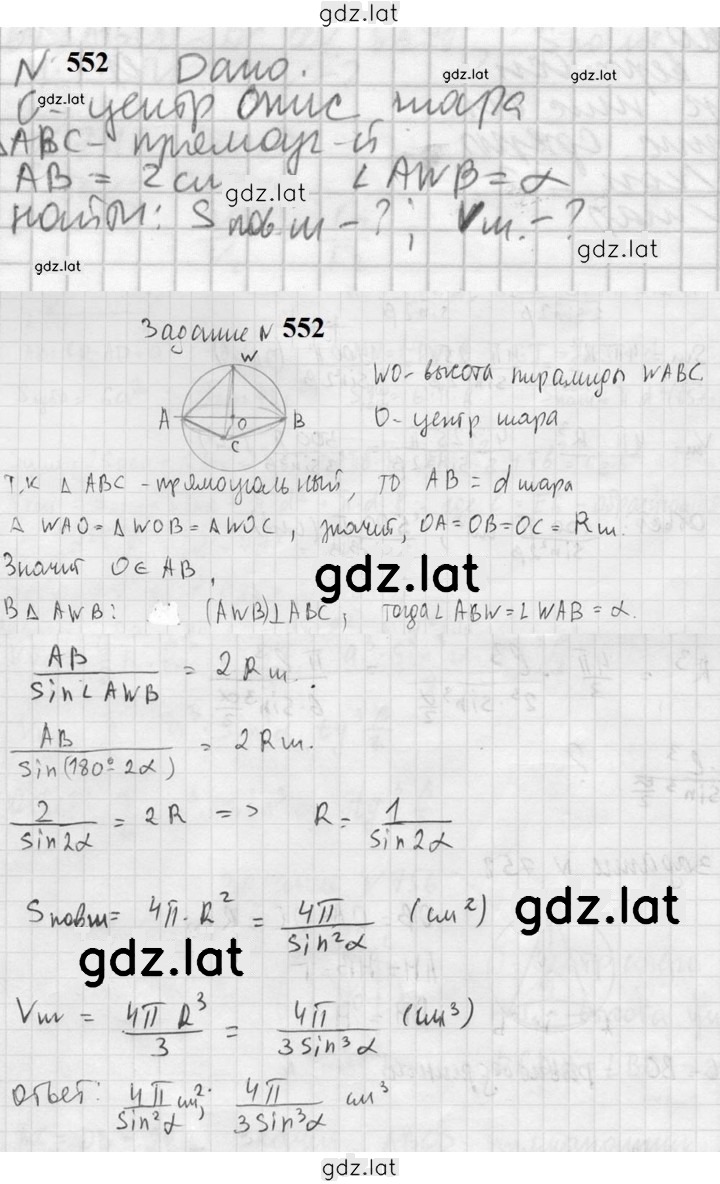 gdz.lat
N 552 Дано:
gdz.lat gdz.lat
gdz.lat
O - центр опис шара
△ABC - прямоуг-й
AB = 2 см ∠AWB = α
gdz.lat
найти: S пов ш - ? ; Vш. - ?
gdz.lat
gdz.lat
Задание N 552
W
A O B
C
WO - высота пирамиды WABC
O - центр шара
т.к △ ABC - прямоугольный, то AB = d шара
△ WAO = △ WOB = △ WOC, значит, OA = OB = OC = Rш.
Значит O ∈ AB,
gdz.lat
В △ AWB: (AWB)⊥ABC, тогда ∠ ABW = ∠ WAB = α.
AB / sin∠AWB = 2Rш.;
AB / sin(180° - 2α) = 2Rш.
2 / sin2α = 2R => R = 1 / sin2α
Sповш = 4π · R² = 4π / sin²α (см²)
gdz.lat
gdz.lat
Vш = 4π R³ / 3 = 4π / 3sin³α (см³)
ответ: 4π / sin²α см²; 4π / 3sin³α см³
gdz.lat